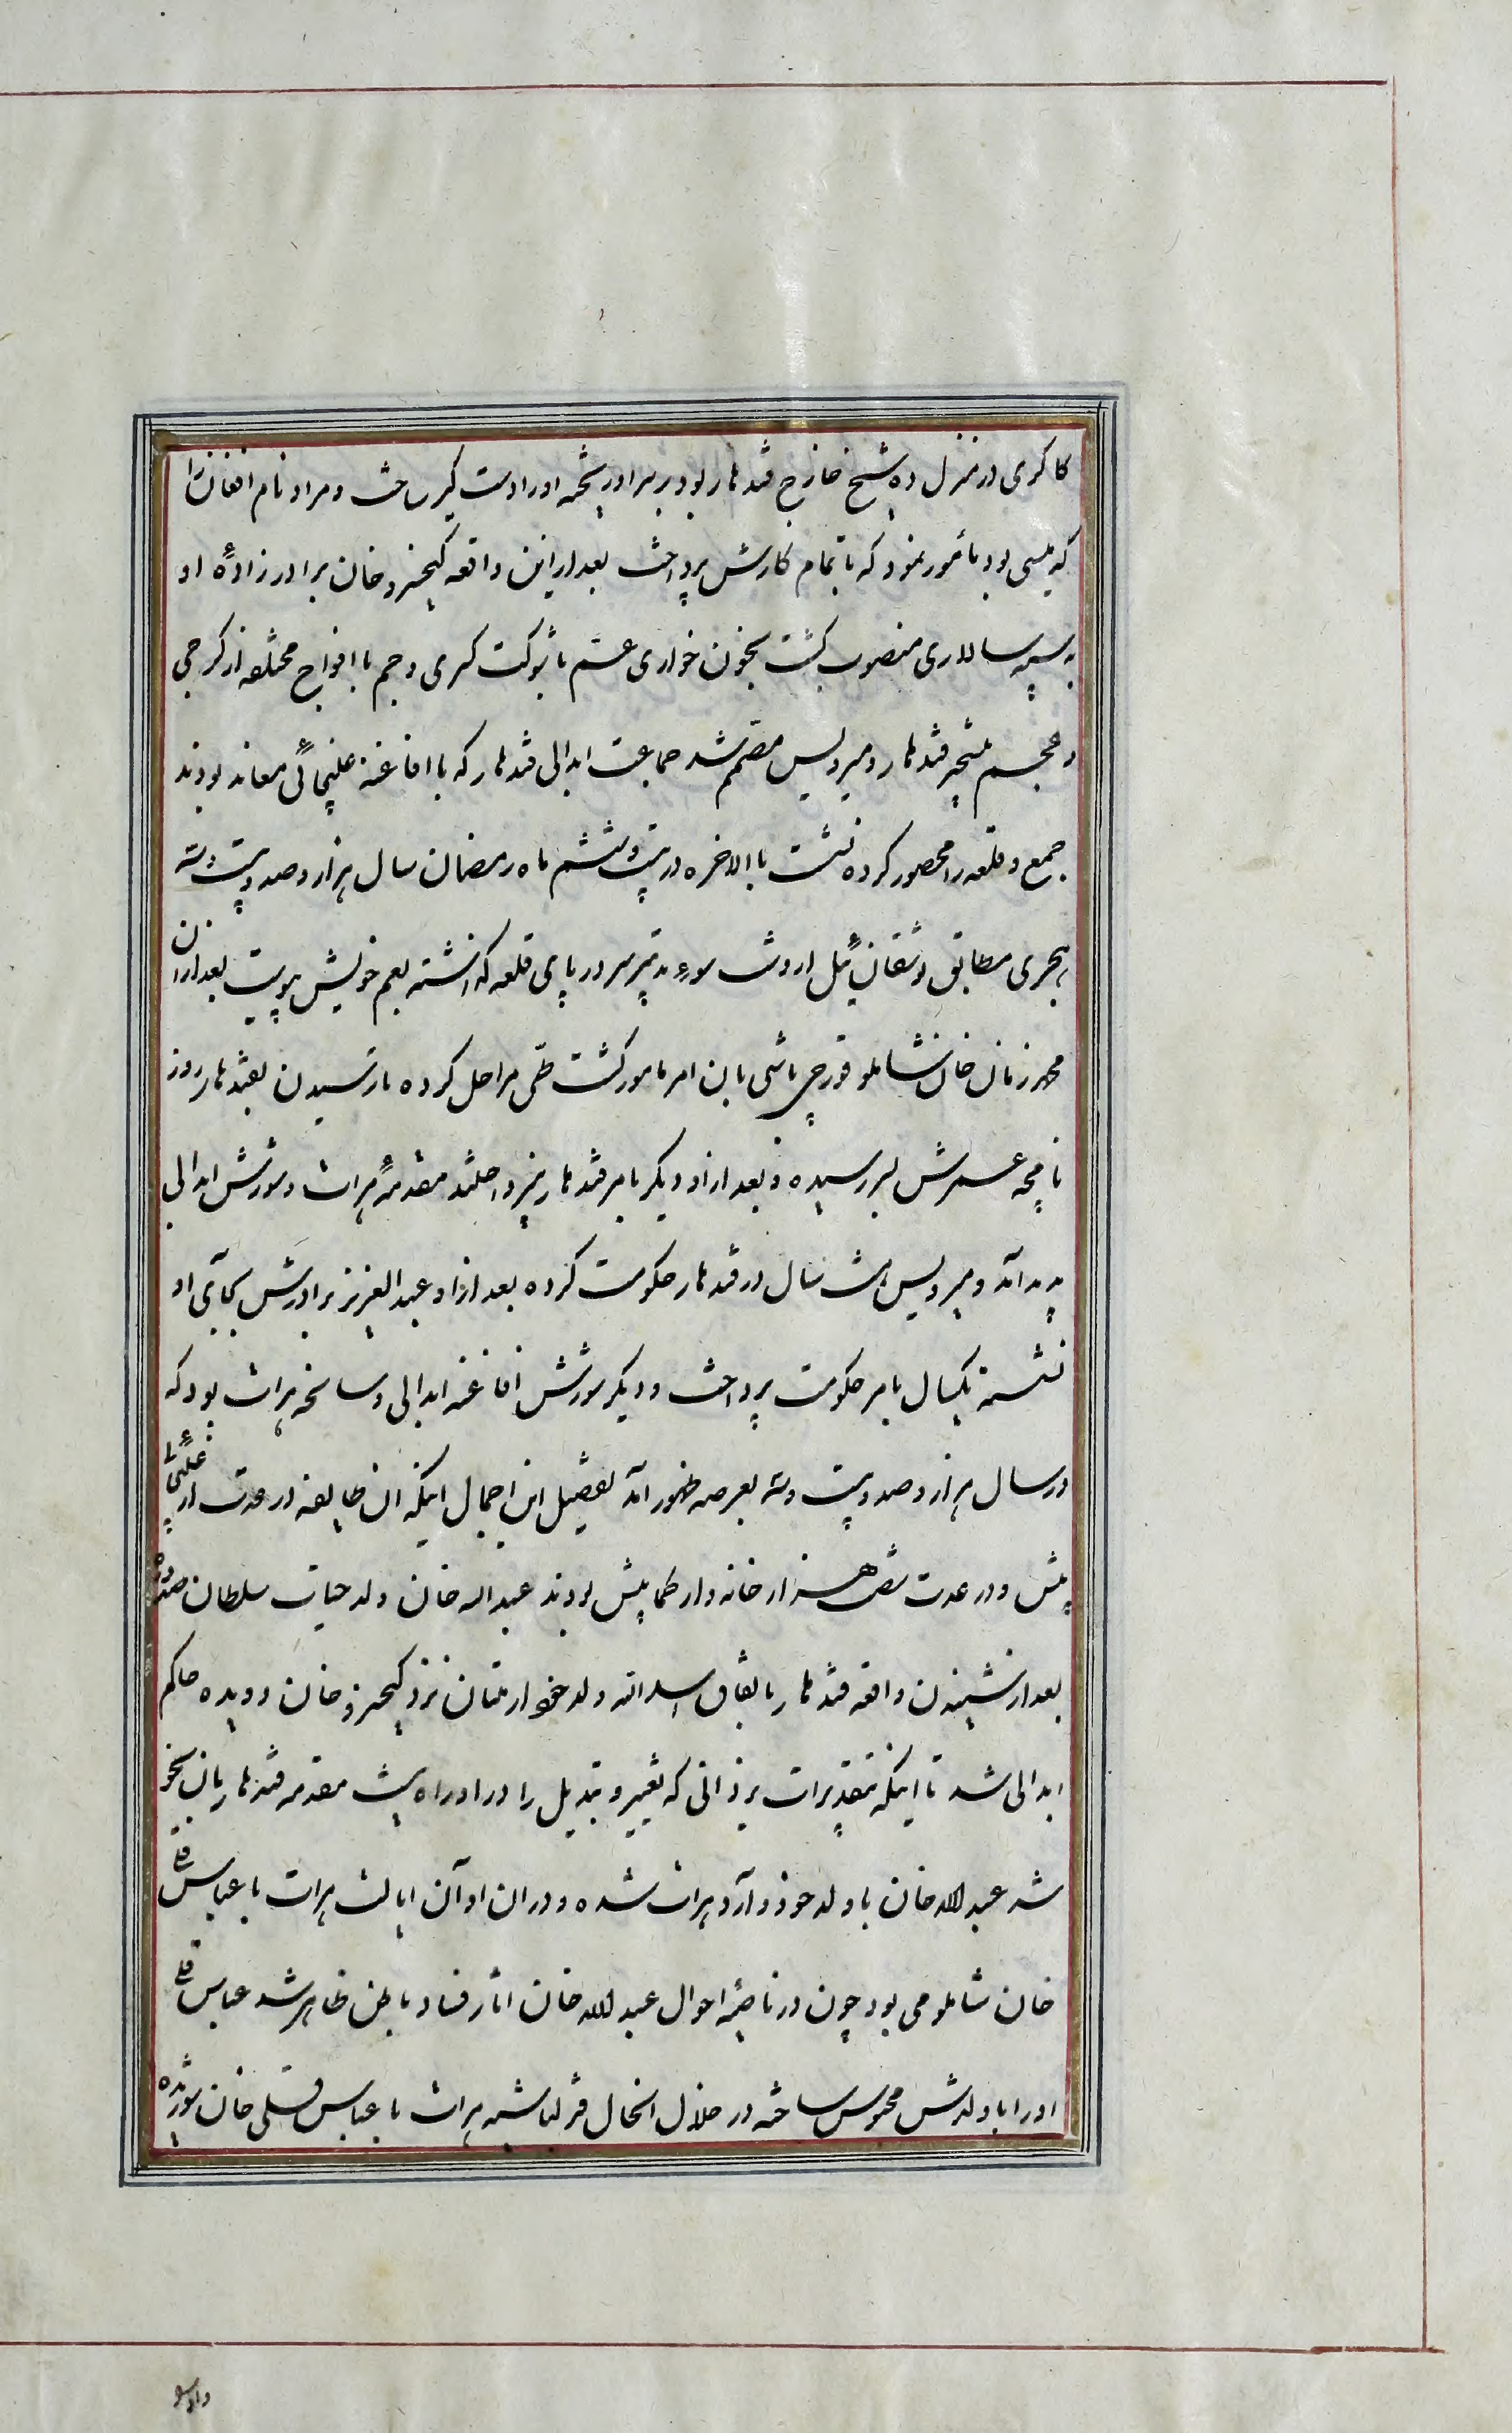 کاکری در منزل ده شیخ خارج قندهار بود بر سر او ریخته او را دستگیر ساخت و مراد نام افغان را
که یلسی بود مأمور نمود که باتمام کارش پرداخت بعد از این واقعه کیخسرو خان برادرزادهٔ او
به سپه سالاری منصوب گشت بخون خواری عم با شوکت کسری و جم با افواج مختلفه از کرجی
و عجم بتسخیر قندهار و میرویس مصمم شد جماعت ابدالی قندهار که با افاغنه غلیجائی معاند بودند
جمع و قلعه را محصور کرده نشست باالاخره در بیست و ششم ماه رمضان سال هزار و صد و بیست و سه
هجری مطابق توشقان ئیل از وشت سوء تدبیر سر در پای قلعه گذاشته بعم خویش پیوست بعد از آن
محمد زمان خان شاملو قورچی باشی باین امر مامور گشت طی مراحل کرده تا رسیدن بقندهار روز
نامچه عمرش بسر رسیده و بعد از او دیگر بامر قندهار نپرداختند مقدمهٔ هرات و شورش ابدالی
پدید آمد و میرویس هشت سال در قندهار حکومت کرده بعد از او عبد العزیز برادرش بجای او
نشسته یکسال بامر حکومت پرداخت و دیگر شورش افاغنه ابدالی و سانحه هرات بود که
در سال هزار و صد و بیست و نه بعرصه ظهور آمد تفصیل این اجمال اینکه ان طایفه در مدت از غلیجائی
پیش و در عدت شصت هزار خانه وار کما بیش بودند عبد اله خان ولد حیات سلطان صدوزه
بعد از شنیدن واقعه قندهار باتفاق اسد الله ولد خود از ملتان نزد کیخسرو خان دویده حاکم
ابدالی شد تا اینکه بتقدیرات یزدانی که تغییر و تبدیل را در او راه نیست مقدمه قندهار بان نحو
شد عبد الله خان با ولد خود وارد هرات شده و در ان اوان ایالت هرات با عباس قلی
خان شاملو می بود چون در ناصیهٔ احوال عبد الله خان اثار فساد باطن ظاهر شد عباس قلی
او را با ولدش محبوس ساخته در خلال انحال قزلباشیه هرات با عباس قلی خان شوریده